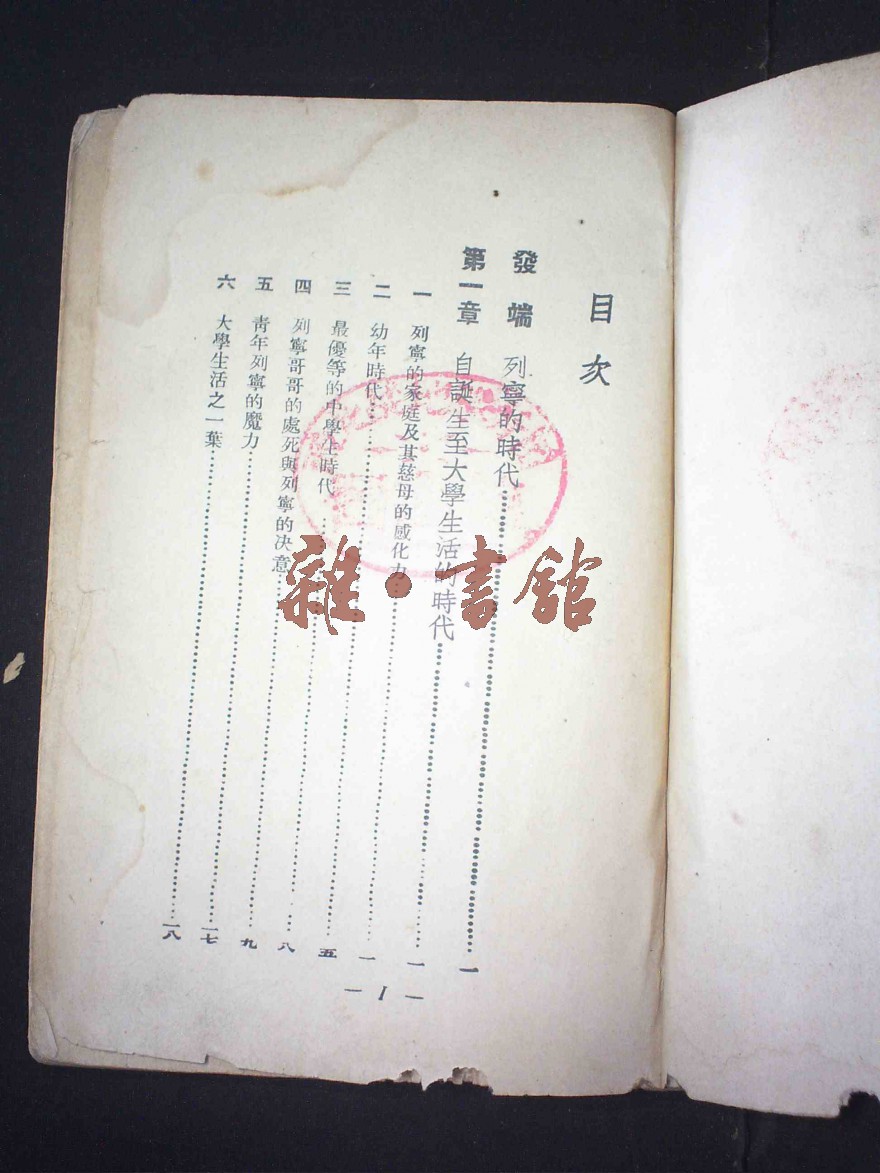 目次
發端 列寧的時代……一
第一章 自誕生至大學生活的時代……一
一 列寧的家庭及其慈母的感化力……一
二 幼年時代……五
三 最優等的中學生時代……八
四 列寧哥哥的處死與列寧的决意……九
五 青年列寧的魔力……一七
六 大學生活之一葉……一八
— 1 —
雜·書館